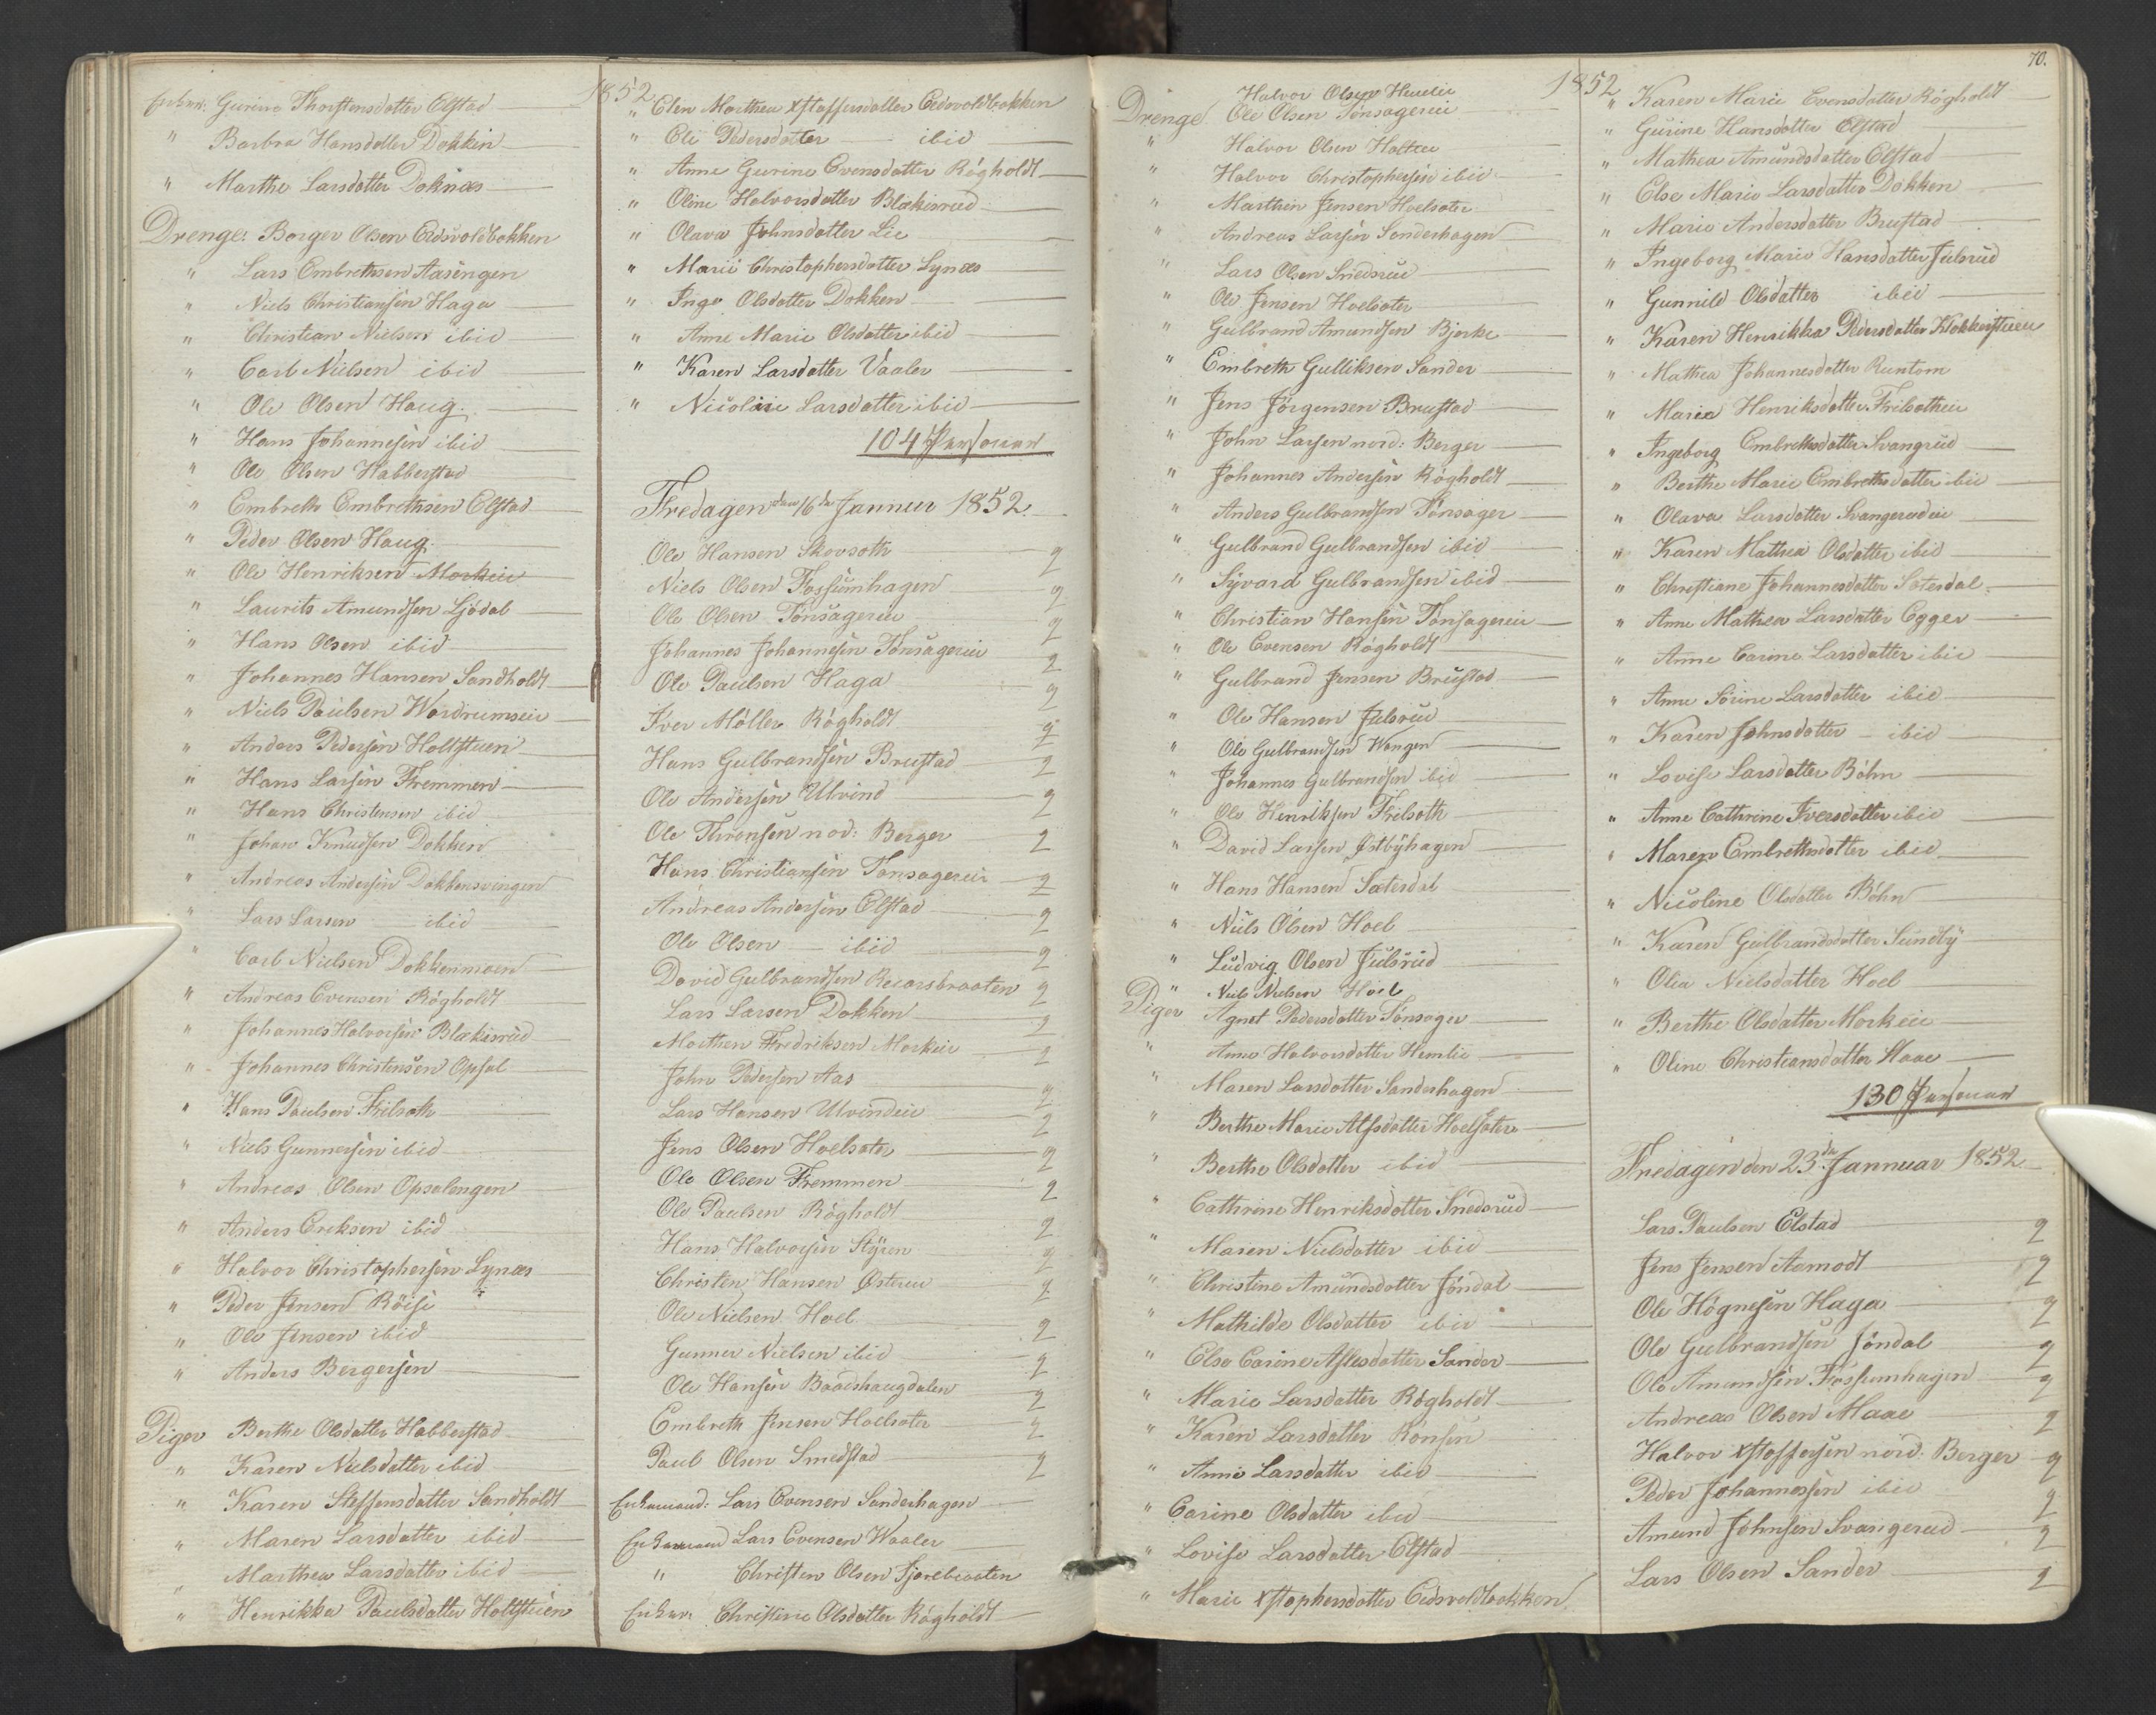 1852.
Enkene: Gurine Thorstensdatter Elstad
" Barbra Hansdatter Dokken
" Marthe Larsdatter Doknæs
Drenge: Borger Olsen Eidsvoldbakken
" Lars Embrethsen Aasengen
" Niels Christiansen Haga
" Christian Nielsen ibid
" Carl Nielsen ibid
" Ole Olsen Haug
" Hans Johannesen ibid
" Ole Olsen Habberstad
" Embreth Embrethsen Elstad
" Peder Olsen Haug
" Ole Henriksen Morkeie
" Laurits Amundsen Ljödal
" Hans Olsen ibid
" Johannes Hansen Sandholdt
" Niels Paulsen Wordrumseie
" Anders Pedersen Holtstuen
" Hans Larsen Fremmen
" Hans Christensen ibid
" Johan Knudsen Dokken
" Andreas Andersen Dokkensvingen
" Lars Larsen ibid
" Carl Nielsen Dokkenmoen
" Andreas Evensen Rögholdt
" Johannes Halvorsen Blækisrud
" Johannes Christensen Opsal
" Hans Paulsen Frilsæth
" Niels Gunnersen ibid
" Andreas Olsen Opsalengen
" Anders Ereksen ibid
" Halvor Christophersen Lynæs
" Peder Jensen Röise
" Ole Jensen ibid
" Anders Bergersen
Piger Berthe Olsdatter Habberstad
" Karen Nielsdatter ibid
" Karen Steffensdatter Sandholdt
" Maren Larsdatter ibid
" Marthea Larsdatter ibid
" Henrikka Paulsdatter Holtstuen
" Elen Marthea Xstoffersdatter Eidsvoldbakken
" Eli Pedersdatter ibid
" Anne Gurine Evensdatter Rögholdt
" Oline Halvorsdatter Blækisrud
" Olava Johnsdatter Lie
" Marie Christophersdatter Lynæs
" Inge Olsdatter Dokken
" Anne Marie Olsdatter ibid
" Karen Larsdatter Vaaler
" Nicoline Larsdatter ibid
104 Personer
Fredagen den 16de Januar 1852.
Ole Hansen Skovsæth 2
Niels Olsen Fossumhagen 2
Ole Olsen Tönsagereie 2
Johannes Johannesen Tönsagereie 2
Ole Paulsen Haga 2
Iver Möller Rögholdt 2
Hans Gulbrandsen Brustad 2
Ole Andersen Ulvind 2
Ole Thronsen nod: Berger 2
Hans Christiansen Tønsagereie 2
Andreas Andersen Elstad 2
Ole Olsen ibid 2
David Gulbrandsen 2
Lars Larsen Dokken 2
Morthen Fredriksen Morkeie 2
John Pedersen Aas 2
Lars Hansen Ulvindeie 2
Jens Olsen Hoelsæter 2
Ole Olsen Fremmen 2
Ole Paulsen Rögholdt 2
Hans Halvorsen Styren 2
Christen Hansen Østereie 2
Ole Nielsen Hoel 2
Gunner Nielsen ibid 2
Ole Hansen Baadshaugdalen 2
Embreth Jensen Hoelsæter 2
Paul Olsen Smedstad 2
Enkemand: Lars Evensen Sanderhagen
Enkemand Lars Evensen Waaler
" Christen Olsen Fjærebraaten
Enkene Christine Olsdatter Rögholdt
70.
1852
Halvor Olsen Hemlie
Drenge. Ole Olsen Tønsagereie
" Halvor Olsen Holteie
" Halvor Christophersen ibid
" Marthin Jensen Hoelsæter
" Andreas Larsen Sanderhagen
" Lars Olsen Snedsrud
" Ole Jensen Hoelsæter
" Gulbrand Amundsen Bjerke
" Embreth Gulliksen Sander
" Jens Jörgensen Brustad
" John Larsen nord: Berger
" Johannes Andersen Rögholdt
" Anders Gulbrandsen Tönsager
" Gulbrand Gulbrandsen ibid
" Syvard Gulbrandsen ibid
" Christian Hansen Tönsagereie
" Ole Evensen Rögholdt
" Gulbrand Jensen Brustad
" Ole Hansen Julsrud
" Ole Gulbrandsen Wangen
" Johannes Gulbrandsen ibid
" Ole Henriksen Frilsæth
" David Larsen Østbyhagen
" Hans Hansen Sæterdal
" Niels Olsen Hoel
" Ludvig Olsen Julsrud
" Niels Nielsen Hoel
Piger Agnet Pedersdatter Tønsager
" Anne Halvorsdatter Hemlie
" Maren Larsdatter Sanderhagen
" Berthe Marie Alfsdatter Hoelsæter
" Berthe Olsdatter ibid
" Cathrine Henriksdatter Snedsrud
" Maren Nielsdatter ibid
" Christine Amundsdatter Jöndal
" Mathilde Olsdatter ibid
" Else Carine Aslesdatter Sander
" Marie Larsdatter Rögholdt
" Karen Larsdatter Rönsen
" Anne Larsdatter ibid
" Carine Olsdatter ibid
" Lovise Larsdatter Elstad
" Marie Xstophersdatter Eidsvoldbakken
" Karen Marie Evensdatter Rögholdt
" Gurine Hansdatter Elstad
" Mathea Amundsdatter Elstad
" Else Marie Larsdatter Dokken
" Marie Andersdatter Brustad
" Ingeborg Marie Hansdatter Julsrud
" Gunnild Olsdatter ibid
" Karen Henrikka Pedersdatter Klokkerstuen
" Mathea Johannesdatter Runtom
" Maria Henriksdatter Frilsætheie
" Ingeborg Embrethsdatter Svangrud
" Berthe Marie Embrethsdatter ibid
" Olava Larsdatter Svangerudeie
" Karen Mathea Olsdatter ibid
" Christiane Johannesdatter Sæterdal
" Anne Mathea Larsdatter Egger
" Anne Carine Larsdatter ibid
" Anne Sörine Larsdatter ibid
" Karen Johnsdatter ibid
" Lovise Larsdatter Böhn
" Anne Cathrine Iversdatter ibid
" Maren Embrethsdatter ibid
" Nicoline Olsdatter Böhn
" Karen Gulbrandsdatter Sundby
" Olia Nielsdatter Hoel
" Berthe Olsdatter Morkeie
" Oline Christiansdatter Haae
130 Personer
Fredagen den 23de Jannuar 1852
Lars Paulsen Elstad 2
Jens Jensen Aamodt 2
Ole Högnesen Haga 2
Ole Gulbrandsen Jöndal 2
Ole Amundsen Fossumhagen 2
Andreas Olsen Maae 2
Halvor Xstoffersen nord: Berger 2
Peder Johannessen ibid 2
Amund Johnsen Svangerud 2
Lars Olsen Sander 2